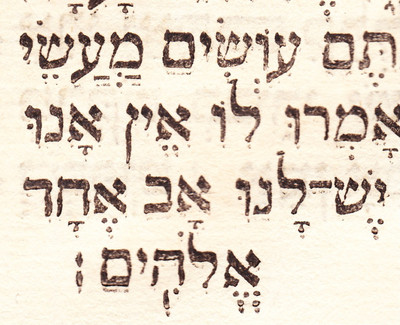 תֶּם עוֹשִׂים מַעַשֵׂי
אָמְרוּ לוֹ אֵין אָנוּ
יֶשׁ־לָנוּ אָב אֶחָד
אֱלֹהִים׃